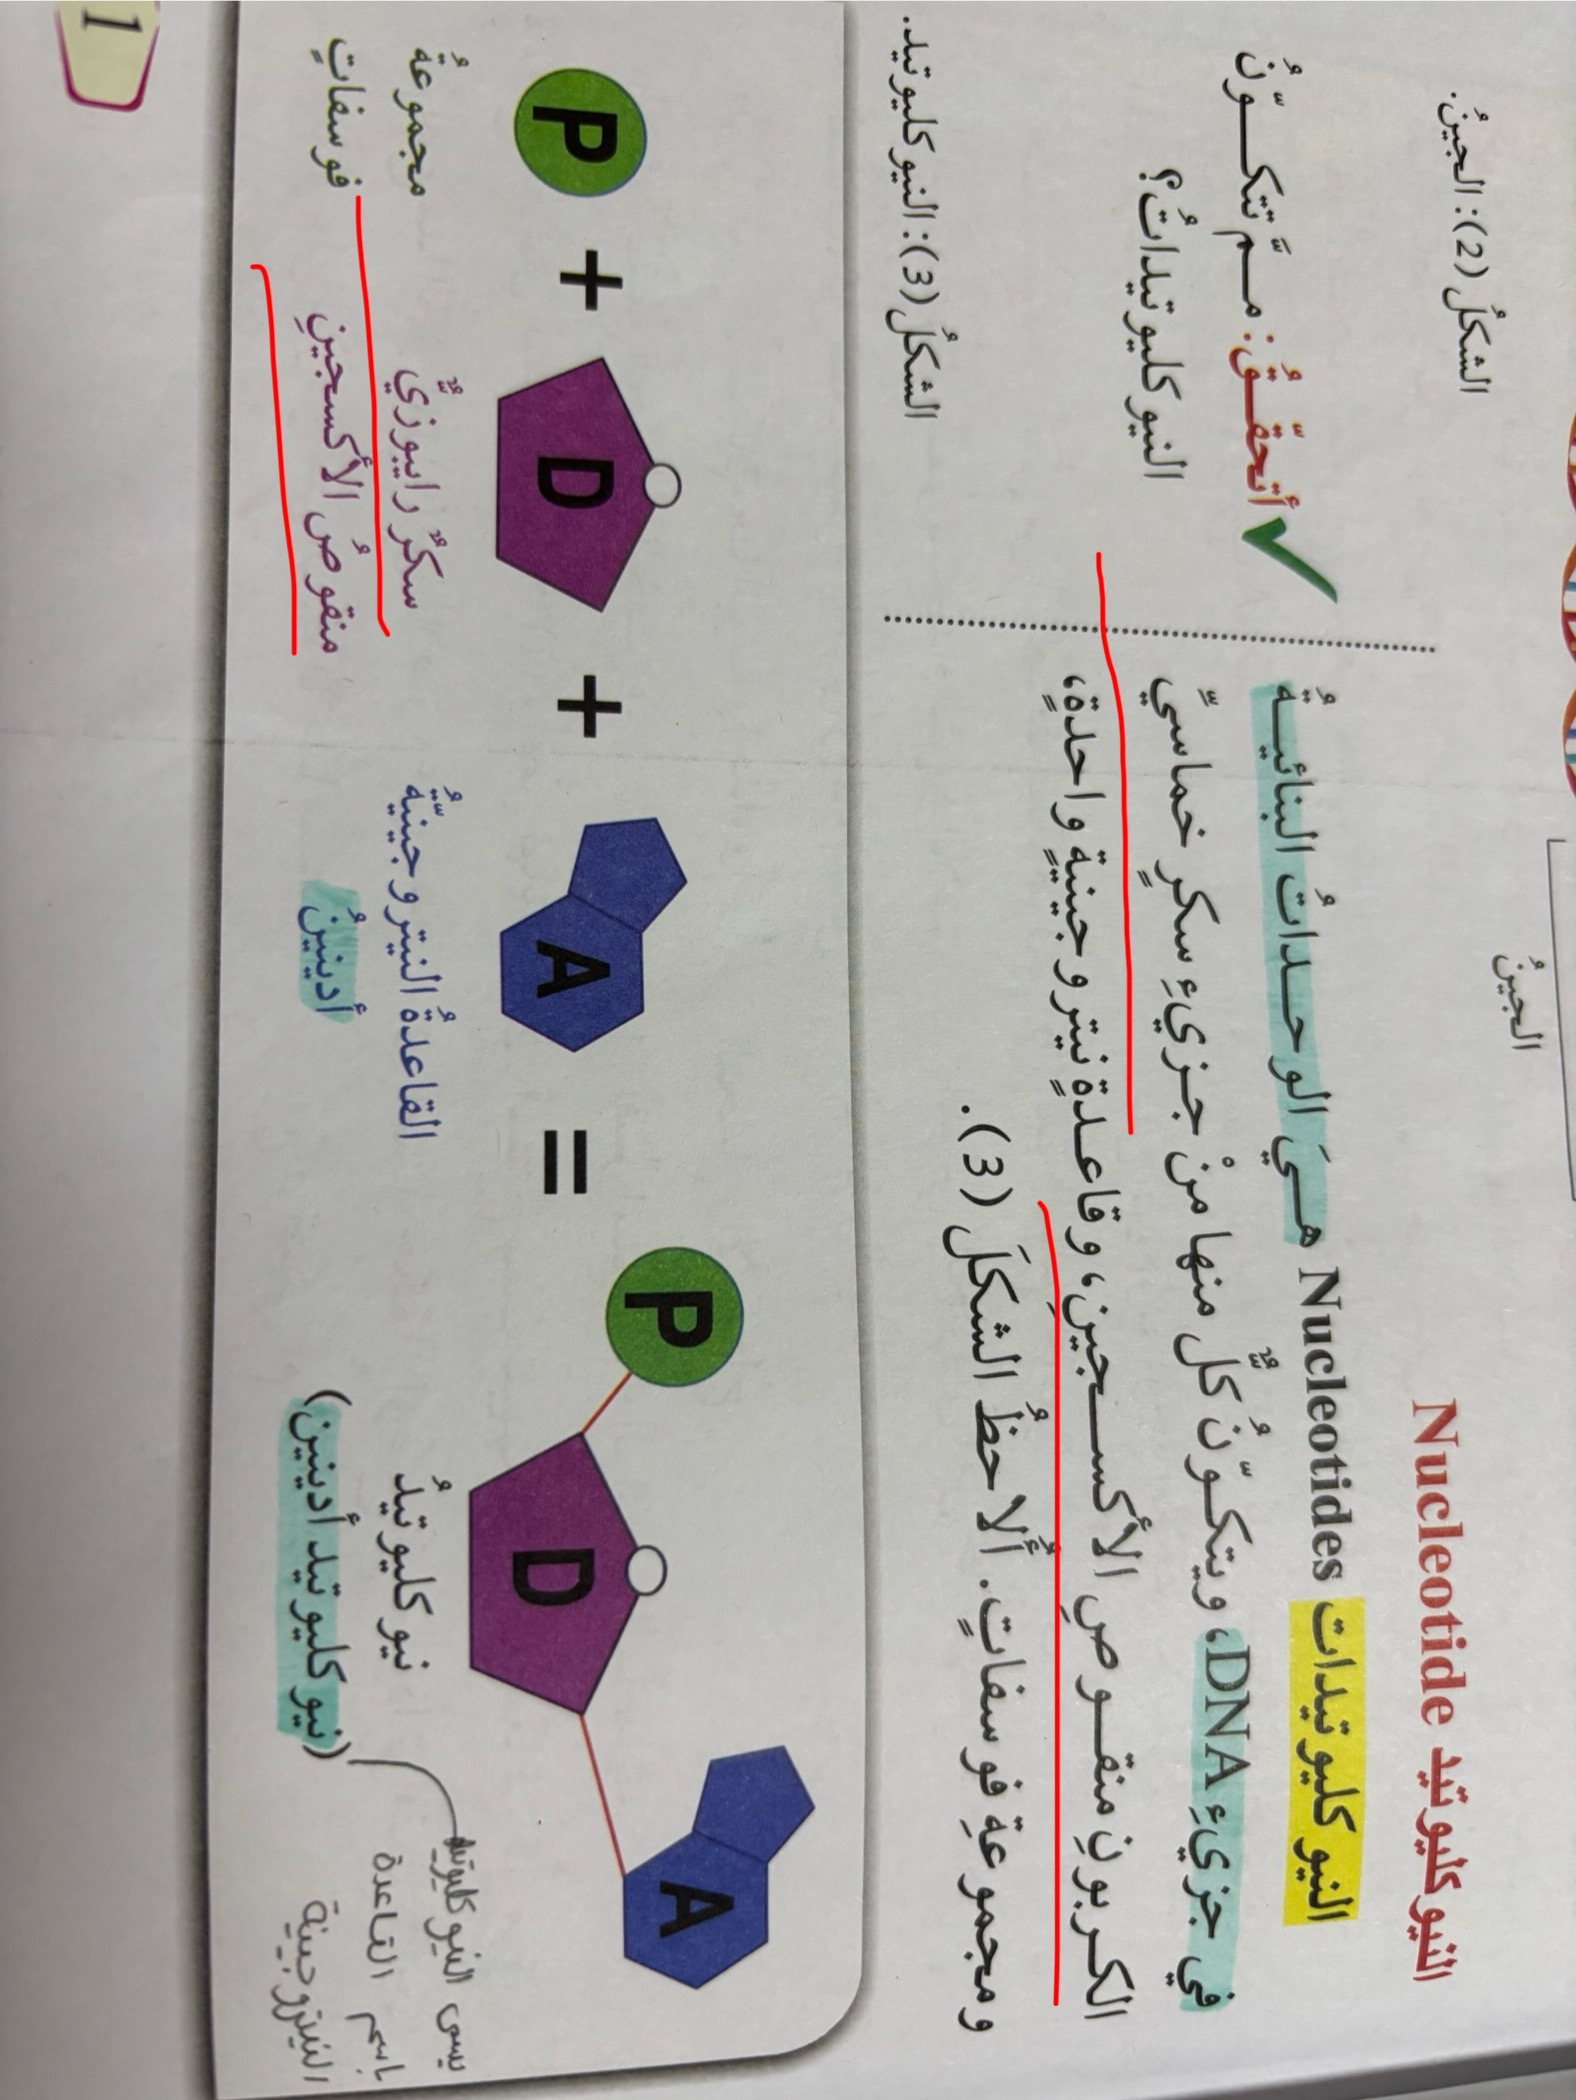 الجينُ
الشكلُ (2): الجينُ.
النيوكليوتيد Nucleotide
النيوكليوتيدات Nucleotides هيَ الوحداتُ البنائيةُ
في جزيءِ DNA، ويتكوّنُ كلٌّ منها منْ جزيءِ سكرٍ خماسيِّ
الكربونِ منقوصِ الأكسجينِ، وقاعدةٍ نيتروجينيةٍ واحدةٍ،
ومجموعةِ فوسفاتٍ. أُلاحظُ الشكلَ (3).
✓ أتحقّقُ: ممَّ تتكوّنُ
النيوكليوتيداتُ؟
الشكلُ (3): النيوكليوتيد.
P + D + A = P D A
مجموعةُ
فوسفاتٍ
سكرٌ رايبوزيٌّ
منقوصُ الأكسجينِ
القاعدةُ النيتروجينيّةُ
أدينينُ
نيوكليوتيدُ
(نيوكليوتيد أدينين)
يسمى النيوكليوتيد
باسم القاعدة
النيتروجينية
1